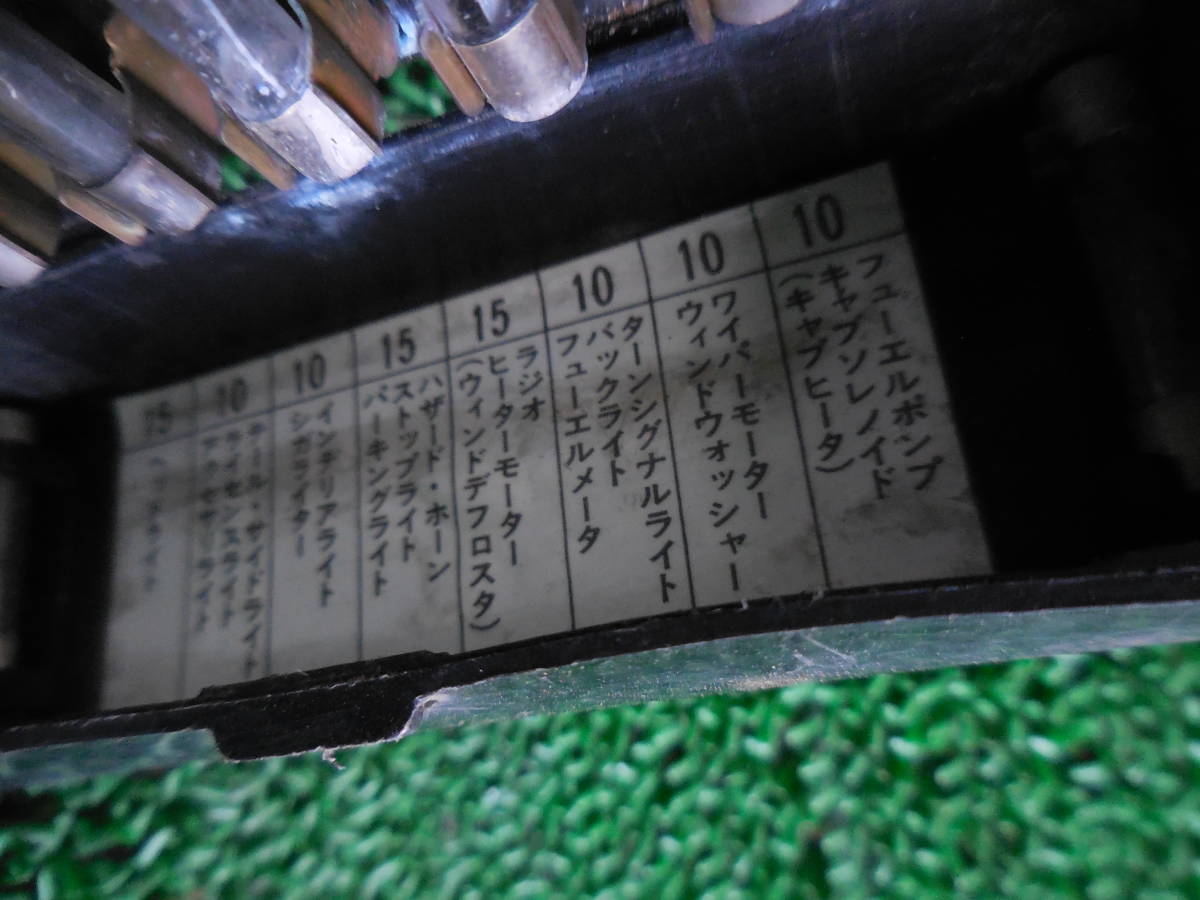 10
フューエルポンプ
キャブソレノイド
(キャブヒータ)
10
ワイパーモーター
ウィンドウォッシャー
10
ターンシグナルライト
バックライト
フューエルメータ
15
ラジオ
ヒーターモーター
(ウィンドデフロスタ)
15
ハザード・ホーン
ストップライト
パーキングライト
10
インテリアライト
シガライター
10
テール・サイドライト
ライセンスライト
15